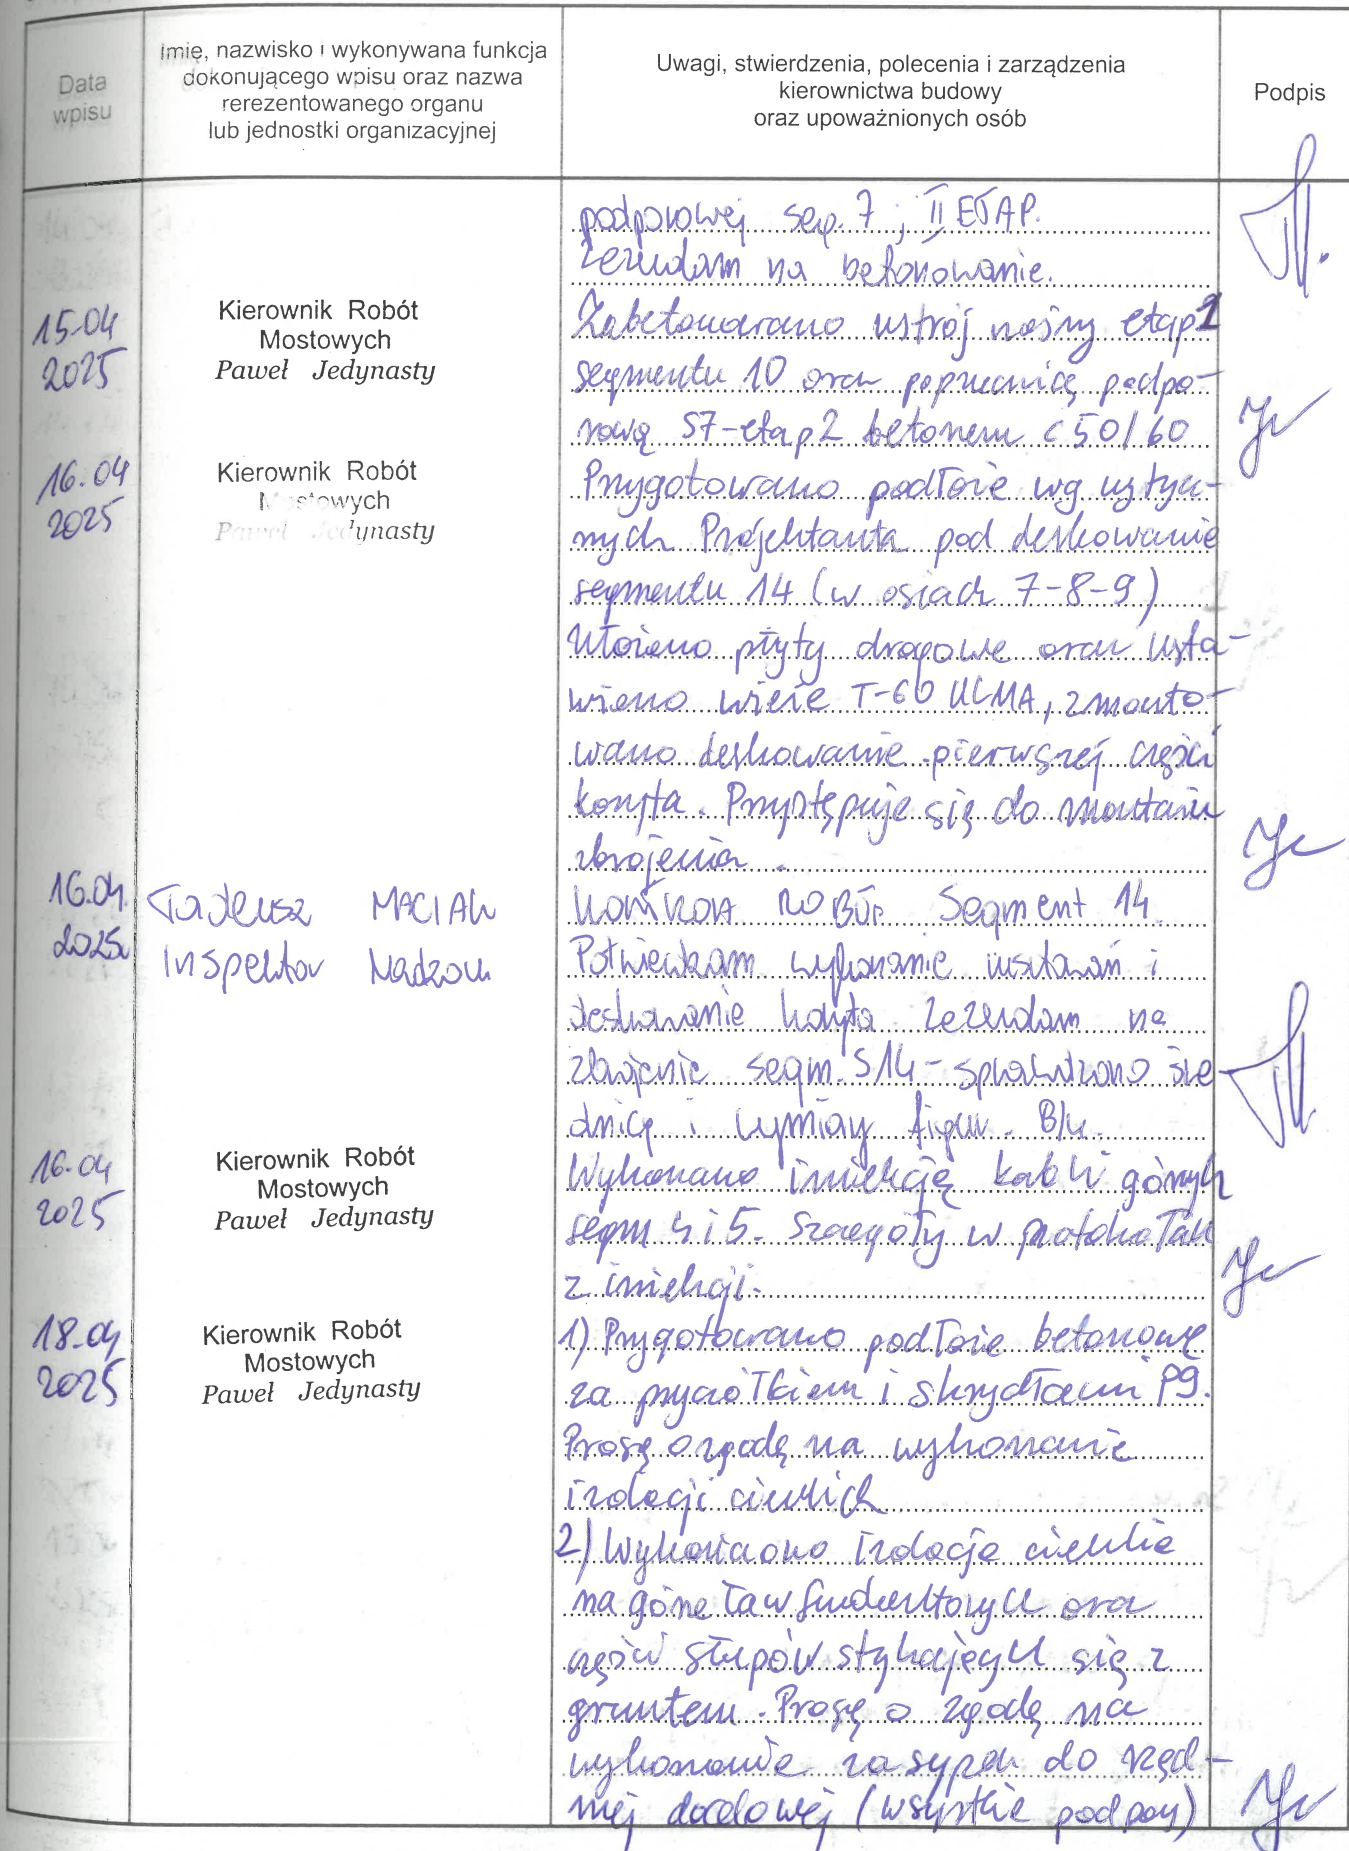 Data
wpisu
Imię, nazwisko i wykonywana funkcja
dokonującego wpisu oraz nazwa
rerezentowanego organu
lub jednostki organizacyjnej
Uwagi, stwierdzenia, polecenia i zarządzenia
kierownictwa budowy
oraz upoważnionych osób
Podpis
podporowej seg. 7, II ETAP.
Zezwalam na betonowanie.
15.04
2025
Kierownik Robót
Mostowych
Paweł Jedynasty
Zabetonowano ustrój nośny etap 1
segmentu 10 oraz poprzecznicę podpo-
rową S7-etap 2 betonem C50/60
16.04
2025
Kierownik Robót
Mostowych
Paweł Jedynasty
Przygotowano podłoże wg wytycz-
nych Projektanta pod deskowanie
segmentu 14 (w osiach 7-8-9)
Ułożono płyty drogowe oraz usta-
wiono wieże T-60 ULMA, zmonto-
wano deskowanie pierwszej części
koryta. Przystępuje się do montażu
zbrojenia.
16.04.
2025
Tadeusz MACIAK
Inspektor Nadzoru
KONTROLA ROBÓT Segment 14.
Potwierdzam wykonanie i
deskowanie koryta zezwalam na
zbrojenie segm. S14 - sprawdzono śre-
dnicę i wymiary figur. B/u.
16.04
2025
Kierownik Robót
Mostowych
Paweł Jedynasty
Wykonano iniekcję kabli górnych
segm 4 i 5. Szczegóły w protokołach
z iniekcji.
18.04
2025
Kierownik Robót
Mostowych
Paweł Jedynasty
1) Przygotowano podłoże betonowe
za przyczółkiem i skrzydłami P9.
Proszę o zgodę na wykonanie
izolacji cienkich
2) Wykonano izolacje cienkie
na górze ław fundamentowych oraz
części słupów stykających się z
gruntem. Proszę o zgodę na
wykonanie zasypek do rzęd-
nej docelowej (wszystkie podpory)